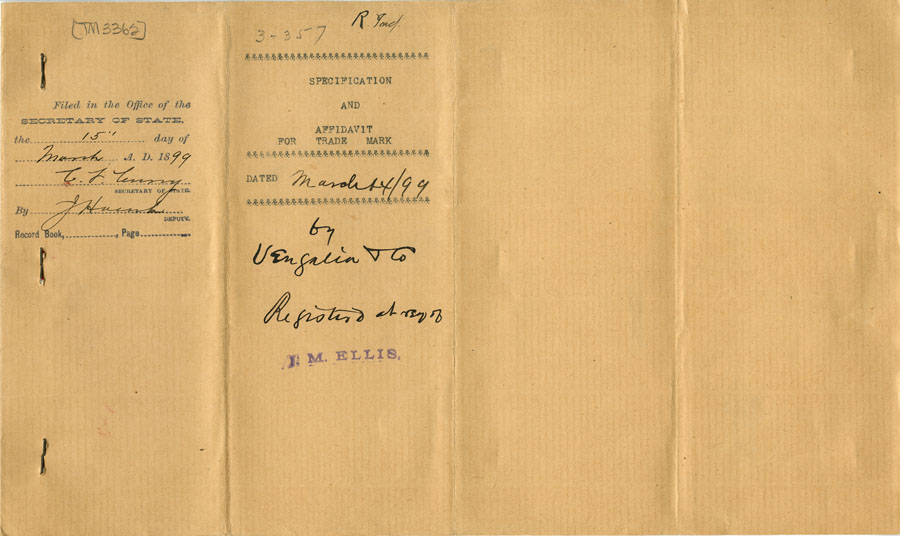 [TM3362]
Filed in the Office of the
SECRETARY OF STATE,
the 15" day of
March A. D. 1899
C. F. Curry
SECRETARY OF STATE.
By J
DEPUTY.
Record Book, Page
3-357
SPECIFICATION
AND
AFFIDAVIT
FOR TRADE MARK
DATED March 14/99
by
& Co
Registered at req of
J. M. ELLIS,